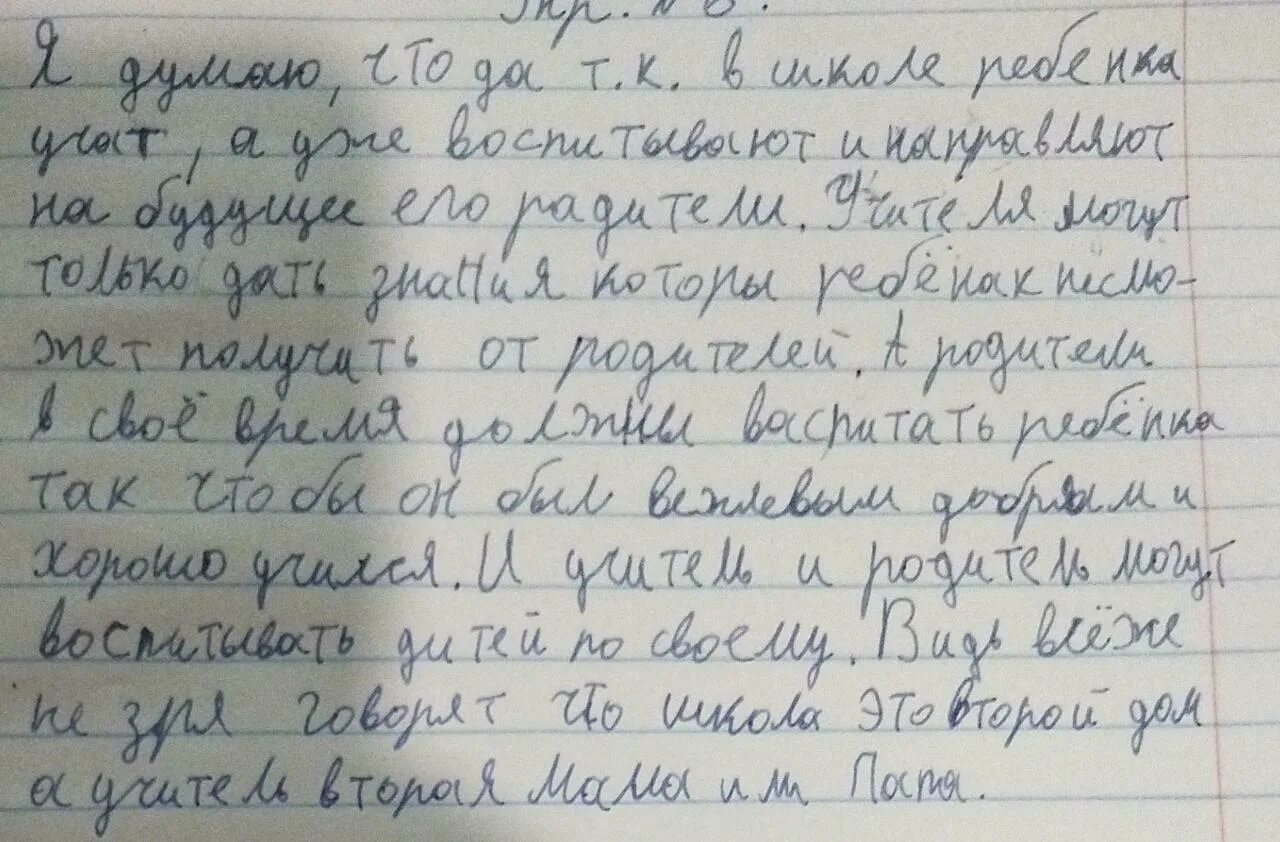 Упр. № 6.
Я думаю, что да т.к. в школе ребенка
учат, а уже воспитывают и направляют
на будущее его радители. Учителя могут
только дать знания которы ребёнак несмо-
жет получить от родителей. А родители
в своё время должны васпитать ребёнка
так что бы он был вежлевым добрым и
хорошо учился. И учитель и родитель могут
воспитывать дитей по своему. Видь всёже
не зря говорят что школа это второй дом
а учитель вторая мама или Папа.